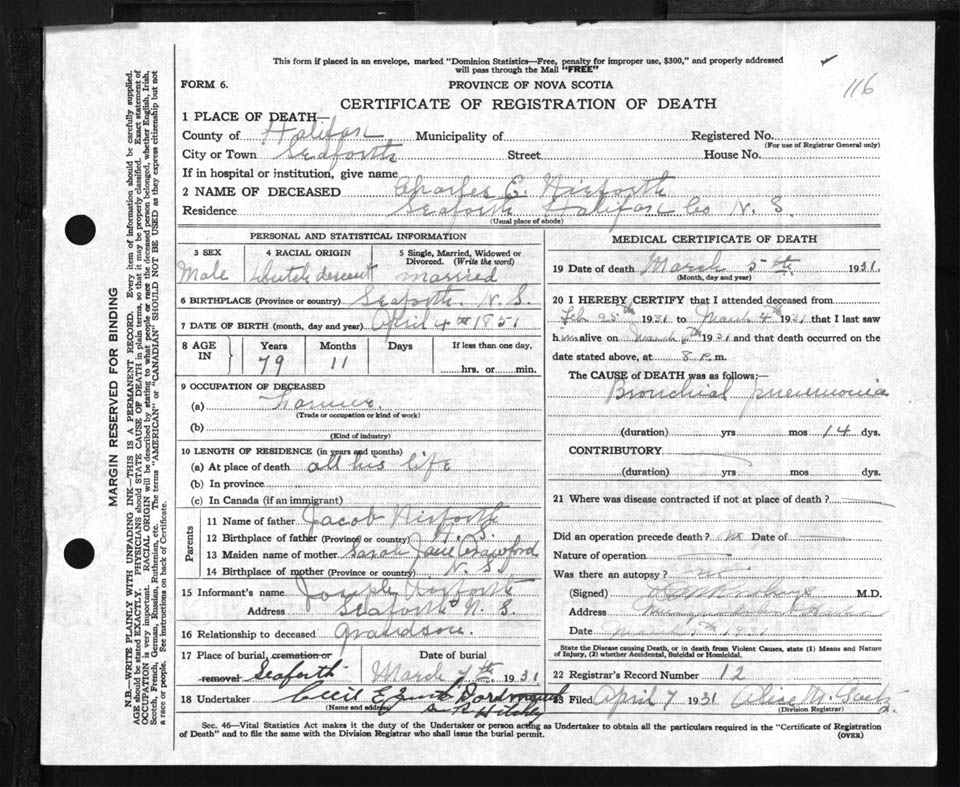 This form if placed in an envelope, marked "Dominion Statistics—Free, penalty for improper use, $300," and properly addressed
will pass through the Mail "FREE"
116
FORM 6.
PROVINCE OF NOVA SCOTIA
CERTIFICATE OF REGISTRATION OF DEATH
1 PLACE OF DEATH—
County of Halifax Municipality of Registered No.
(For use of Registrar General only)
City or Town Seaforth Street House No.
If in hospital or institution, give name
2 NAME OF DECEASED Charles E. Nieforth
Residence Seaforth Halifax Co N. S.
(Usual place of abode)
PERSONAL AND STATISTICAL INFORMATION
3 SEX 4 RACIAL ORIGIN 5 Single, Married, Widowed or
Divorced. (Write the word)
Male Dutch descent married
6 BIRTHPLACE (Province or country) Seaforth. N. S.
7 DATE OF BIRTH (month, day and year) April 4th 1851
8 AGE IN Years Months Days If less than one day,
79 11 hrs. or min.
9 OCCUPATION OF DECEASED
(a) Farmer.
(Trade or occupation or kind of work)
(b)
(Kind of industry)
10 LENGTH OF RESIDENCE (in years and months)
(a) At place of death all his life
(b) In province
(c) In Canada (if an immigrant)
Parents
11 Name of father Jacob Nieforth
12 Birthplace of father (Province or country) N. S.
13 Maiden name of mother Sarah Jane Crawford
14 Birthplace of mother (Province or country) N. S.
15 Informant's name Joseph Nieforth
Address Seaforth N. S.
16 Relationship to deceased Grandson.
17 Place of burial, cremation or Date of burial
removal Seaforth March 7th, 1931
18 Undertaker Cecil E. Dartmouth
(Name and address)
MEDICAL CERTIFICATE OF DEATH
19 Date of death March 5th. 1931.
(Month, day and year)
20 I HEREBY CERTIFY that I attended deceased from
Feb 25th 1931 to March 4th 1931 that I last saw
him alive on March 1931 and that death occurred on the
date stated above, at 8 P.m.
The CAUSE of DEATH was as follows:—
Bronchial pneumonia
(duration) yrs mos 14 dys.
CONTRIBUTORY
(duration) yrs mos dys.
21 Where was disease contracted if not at place of death?
Did an operation precede death? no Date of
Nature of operation
Was there an autopsy? no
(Signed) M.D.
Address
Date March 5th 1931
State the Disease causing Death, or in death from Violent Causes, state (1) Means and Nature
of Injury, (2) whether Accidental, Suicidal or Homicidal.
22 Registrar's Record Number 12
23 Filed April 7 1931 Alice M.
(Division Registrar)
Sec. 46—Vital Statistics Act makes it the duty of the Undertaker or person acting as Undertaker to obtain all the particulars required in the "Certificate of Registration
of Death" and to file the same with the Division Registrar who shall issue the burial permit.
(OVER)
MARGIN RESERVED FOR BINDING
N.B.—WRITE PLAINLY WITH UNFADING INK—THIS IS A PERMANENT RECORD. Every item of information should be carefully supplied.
AGE should be stated EXACTLY. PHYSICIANS should STATE CAUSE OF DEATH in plain terms, so that it may be properly classified. Exact statement of
OCCUPATION is very important. RACIAL ORIGIN will be described by stating to what people or race the deceased person belonged, whether English, Irish,
Scotch, French, German, Russian, Ruthenian, etc. The terms "AMERICAN" or "CANADIAN" SHOULD NOT BE USED as they express citizenship but not
a race or people. See instructions on back of Certificate.